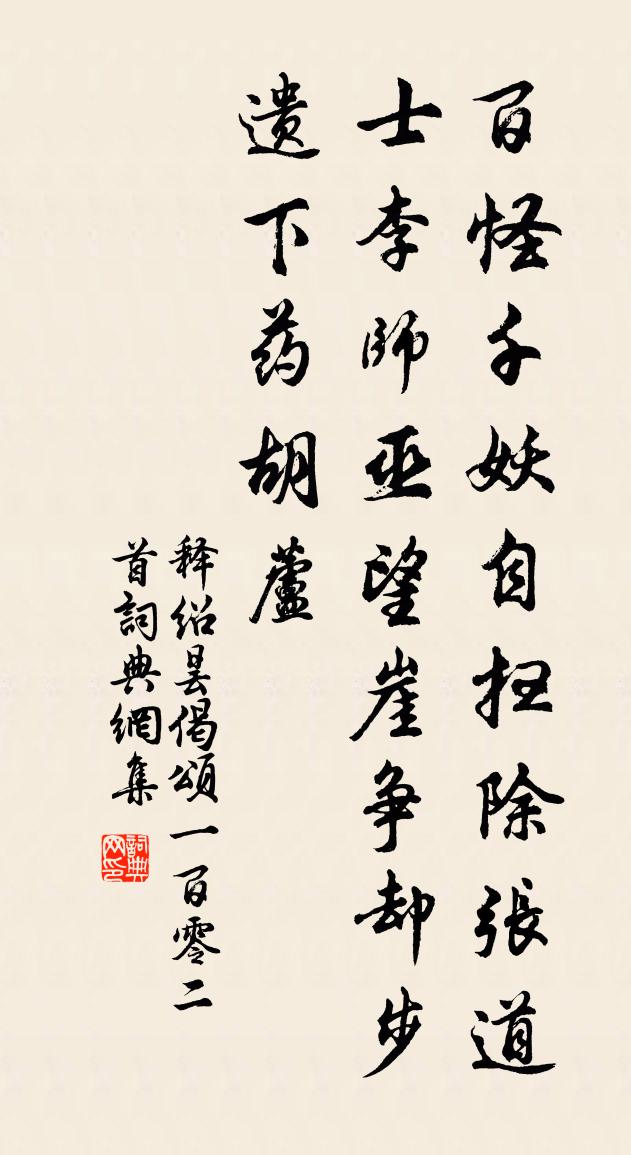 百怪千妖自扫除張道
士李師巫望崖争却步
遗下药胡蘆
释绍昙偈頌一百零二
首詞典網集
詞典
网印